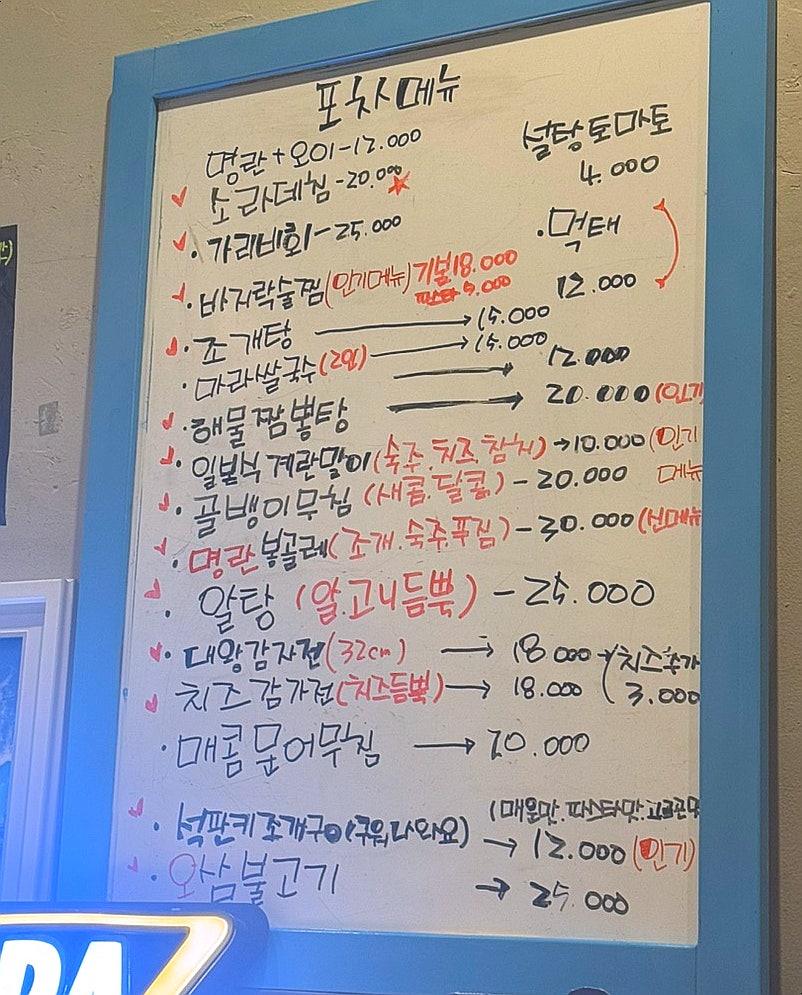 포차메뉴
명란+오이-12.000
소라데침-20.000
설탕토마토
4.000
·가리비회-25.000
·먹태
12.000
·바지락술찜(인기메뉴) 기본18.000
파스타 9.000
·조개탕 → 15.000
·마라쌀국수(2인) → 15.000
12.000
·해물짬뽕탕 → 20.000(인기
·일본식계란말이(숙주.치즈.참치)→10.000(인기
메뉴
·골뱅이무침(새콤.달콤)-20.000
·명란봉골레(조개.숙주푸짐)-30.000(신메뉴
·알탕(알.고니듬뿍)-25.000
·대왕감자전(32cm) → 18.000
(치즈추가
3.000
·치즈감자전(치즈듬뿍) → 18.000
·매콤문어무침 → 20.000
(매운맛.파스타맛.고르곤
·석판키조개구이(구워나와요) → 12.000(인기)
·오삼불고기 → 25.000